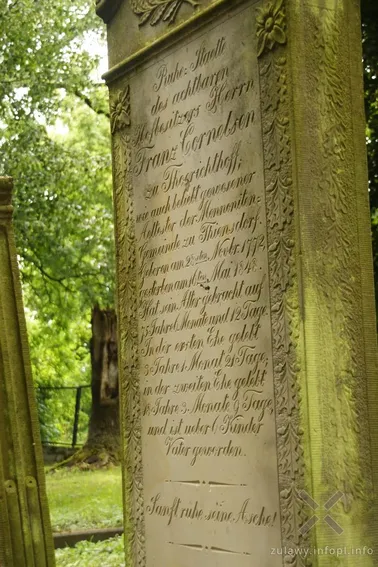 Ruhe-Staette
des achtbaren
Hofbesitzers Herrn
Franz Cornelsen
zu Thiegrichthoff,
wie auch beliebt gewesener
der Mennoniten-
Gemeinde zu Thiensdorf.
Geboren am Novbr. 1772
gestorben am Mai 1848.
Hat sein Alter gebracht auf
75 Jahre 6 Monate und 12 Tage
In der ersten Ehe gelebt
Jahre 1 Monat 21 Tage,
in der zweiten Ehe gelebt
Jahre 3 Monate Tage
und ist ueber 6 Kinder
Vater geworden.
Sanft ruhe seine Asche!
zulawy.infopl.info